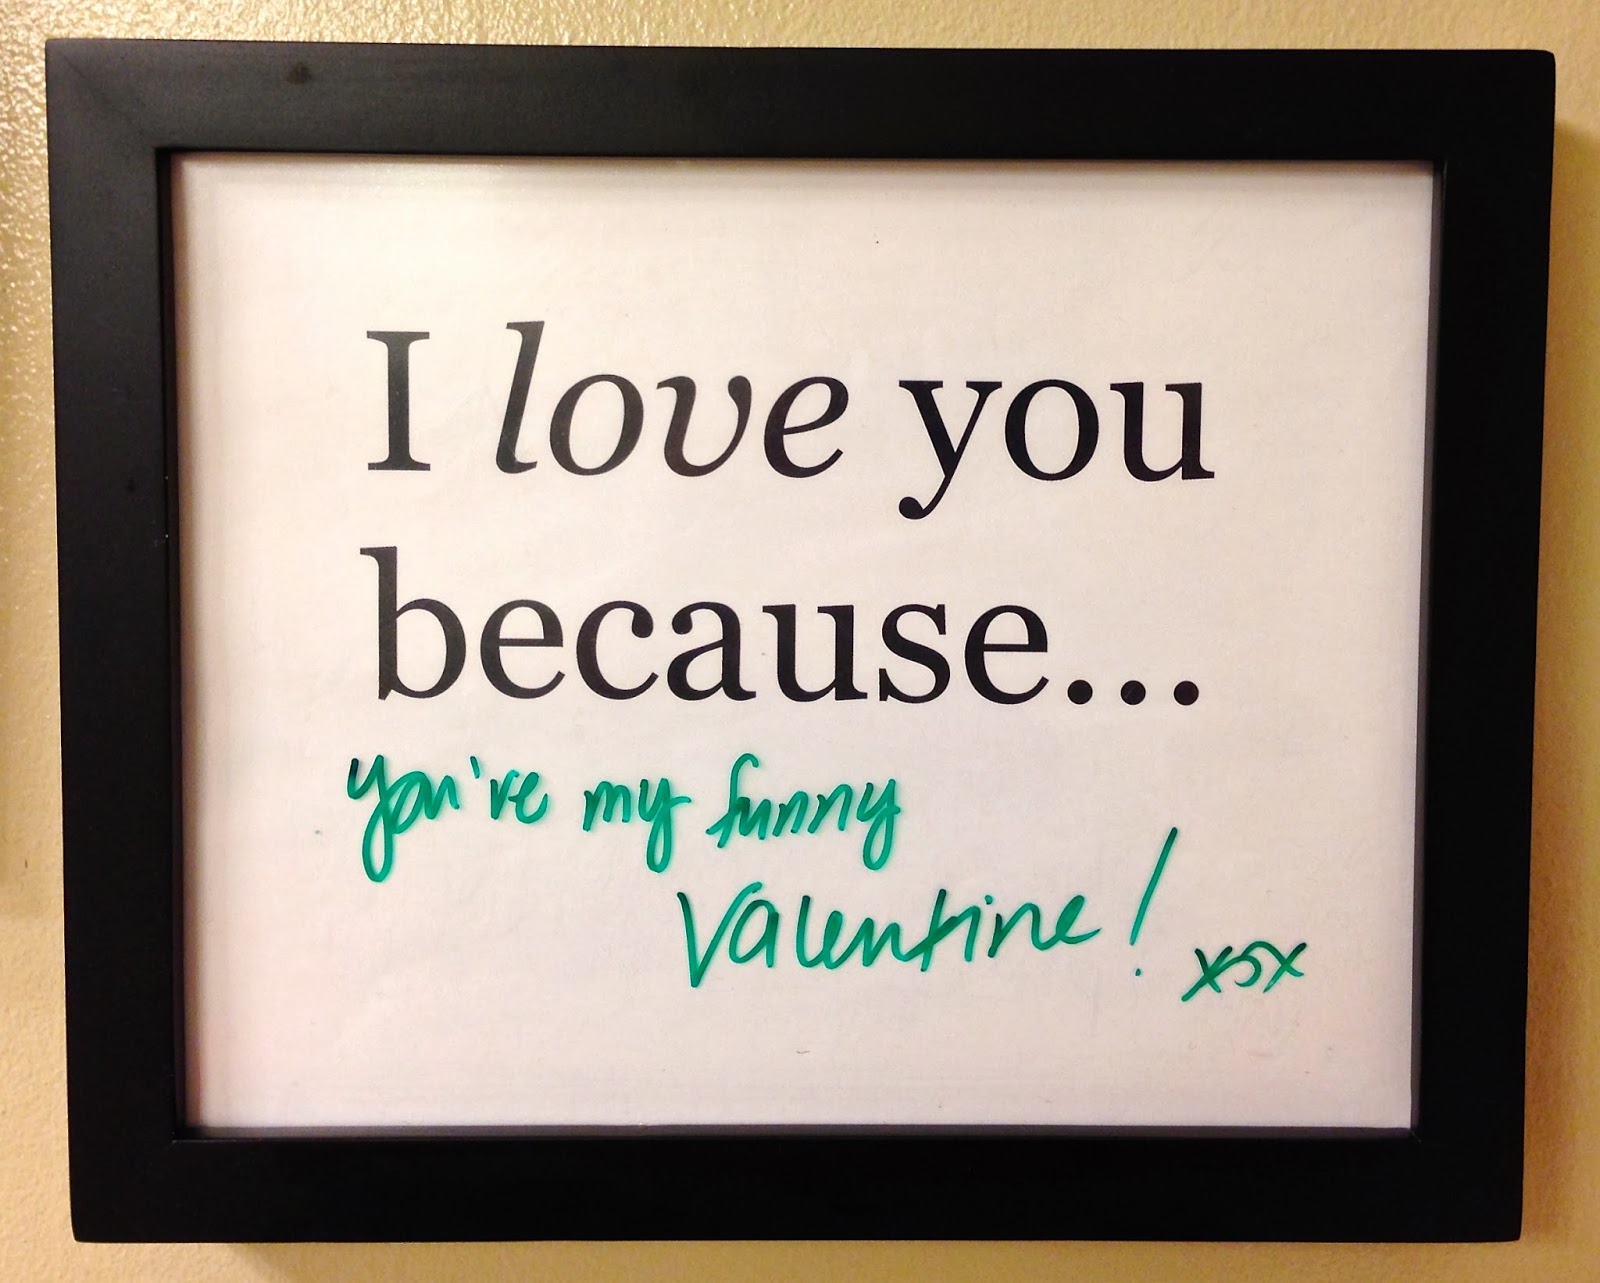 I love you
because...
you're my funny
Valentine! xox